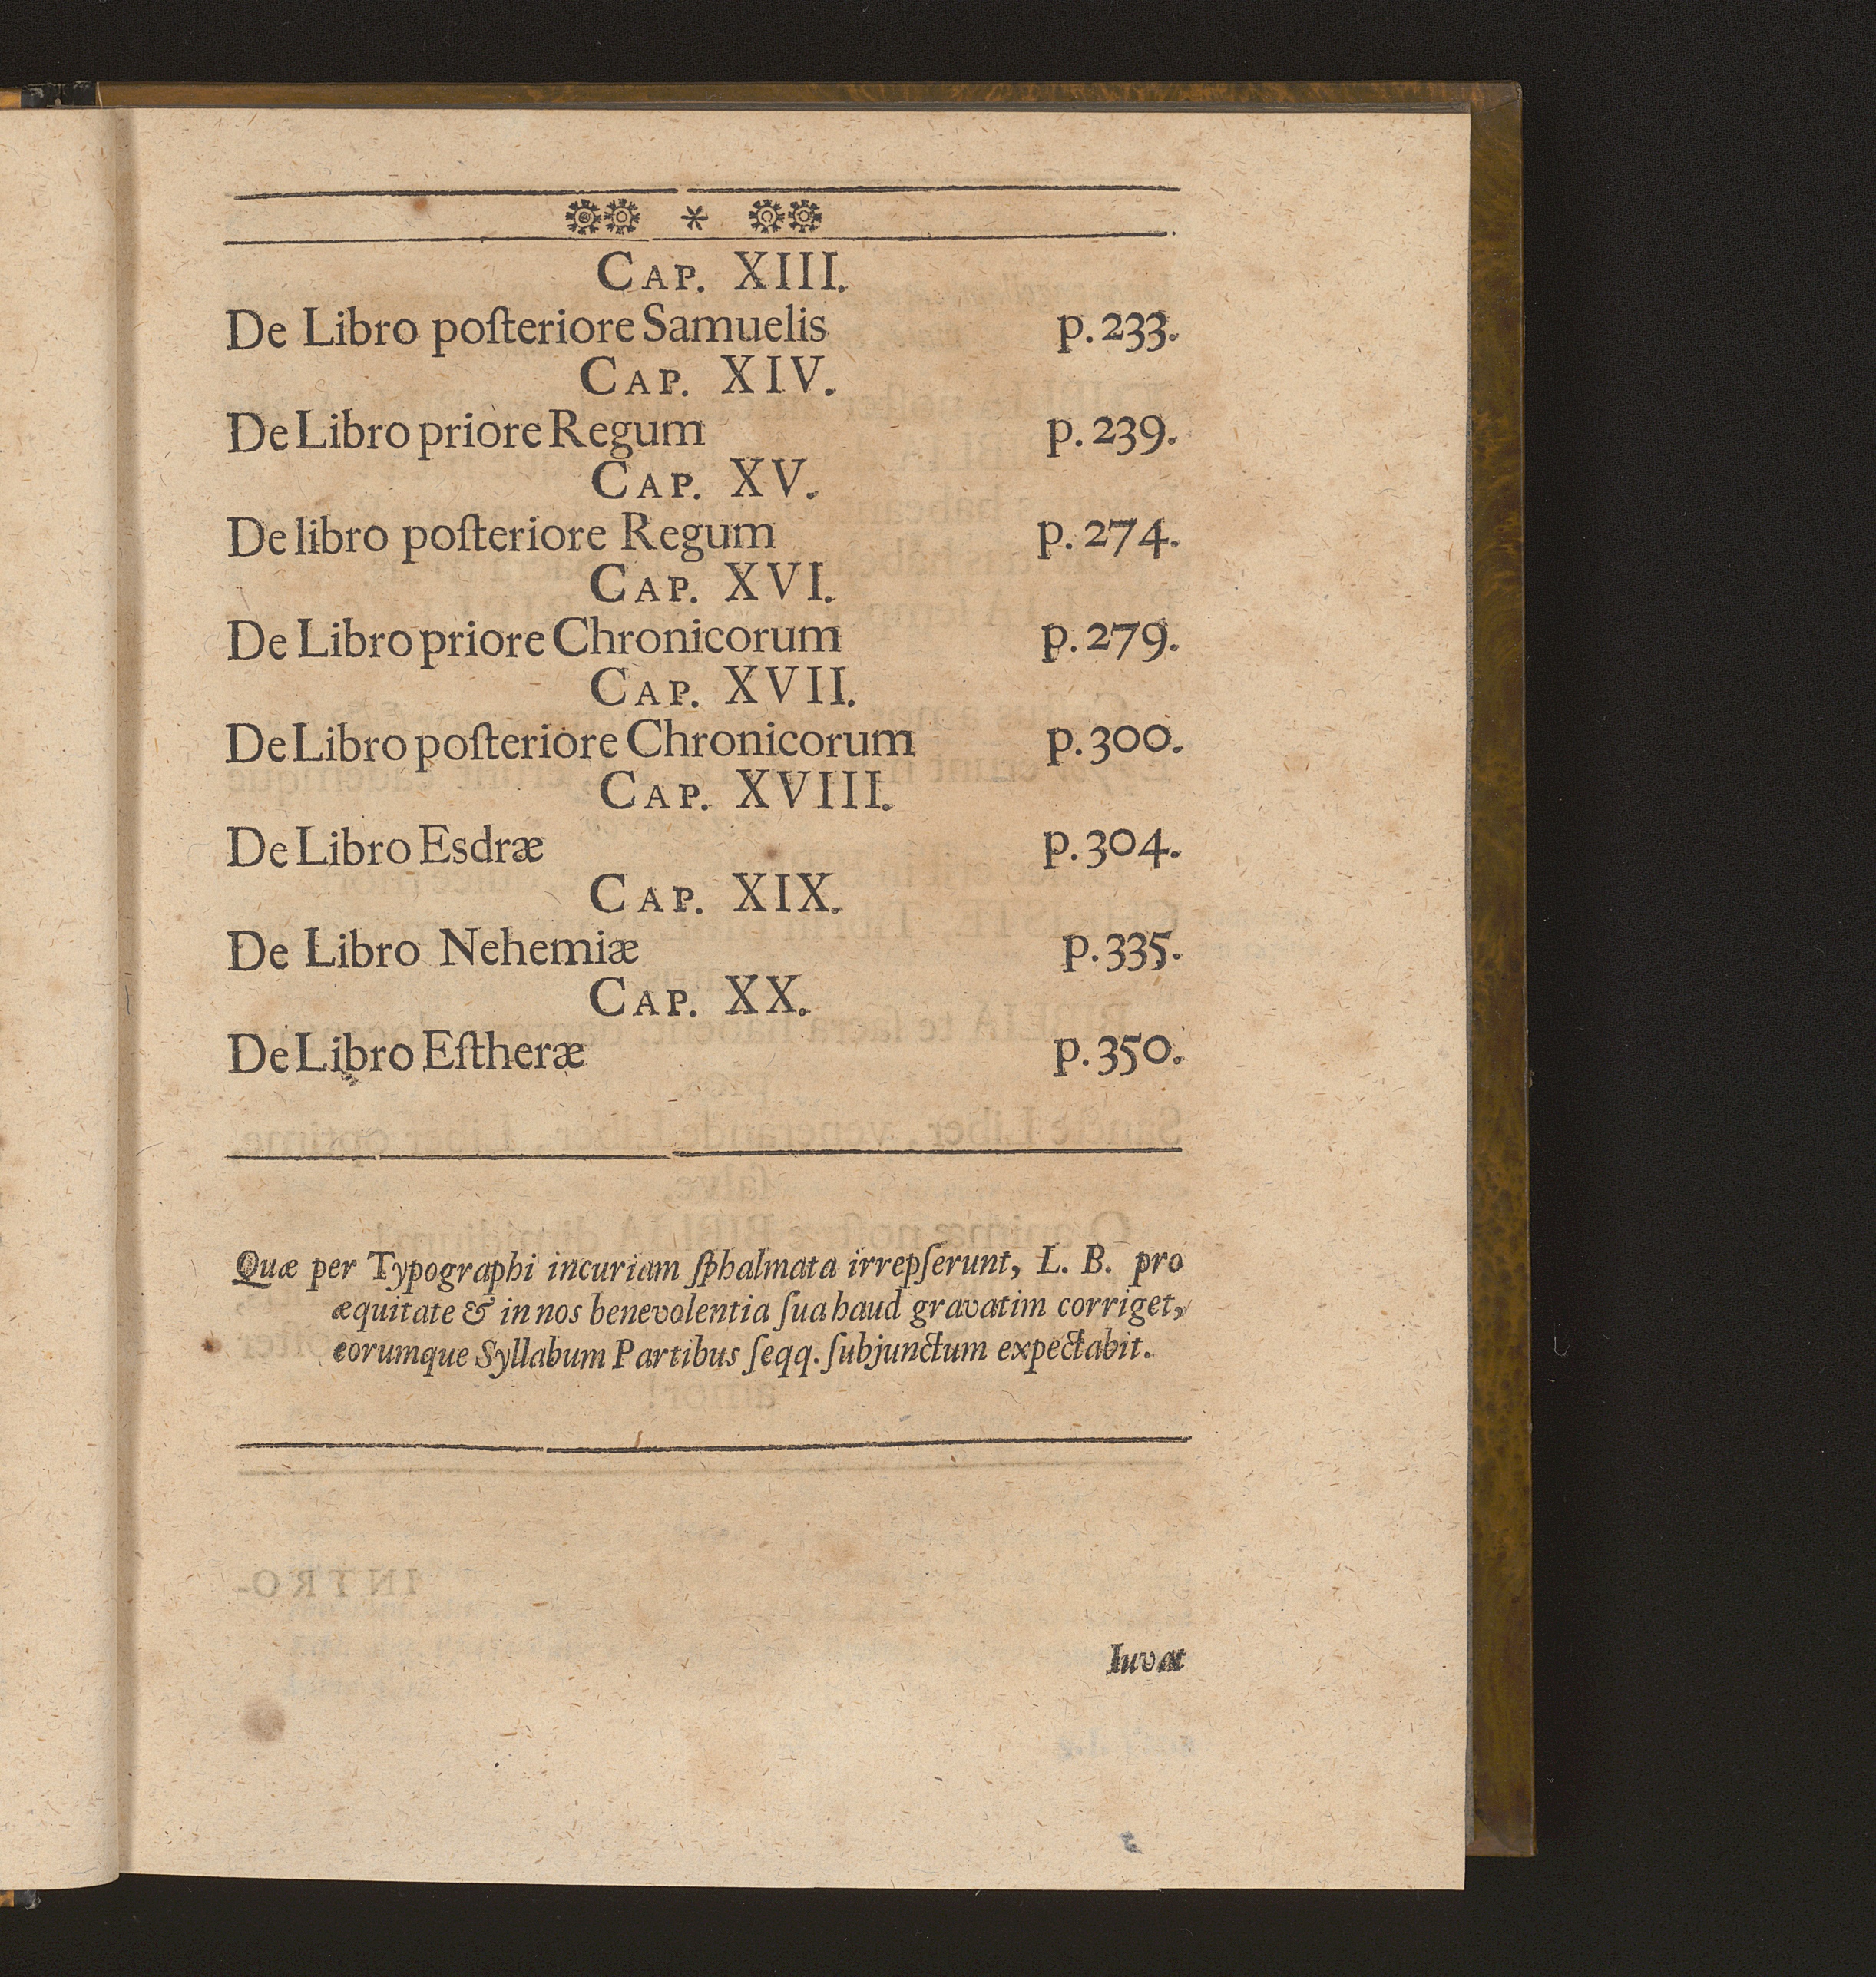 CAP. XIII.
De Libro poſteriore Samuelis p. 233.
CAP. XIV.
De Libro priore Regum p. 239.
CAP. XV.
De libro poſteriore Regum p. 274.
CAP. XVI.
De Libro priore Chronicorum p. 279.
CAP. XVII.
De Libro poſteriore Chronicorum p. 300.
CAP. XVIII.
De Libro Esdræ p. 304.
CAP. XIX.
De Libro Nehemiæ p. 335.
CAP. XX.
De Libro Eſtheræ p. 350.
Quæ per Typographi incuriam ſphalmata irrepſerunt, L. B. pro
æquitate & in nos benevolentia ſua haud gravatim corriget,
eorumque Syllabum Partibus ſeqq. ſubjunctum expectabit.
Iuvat